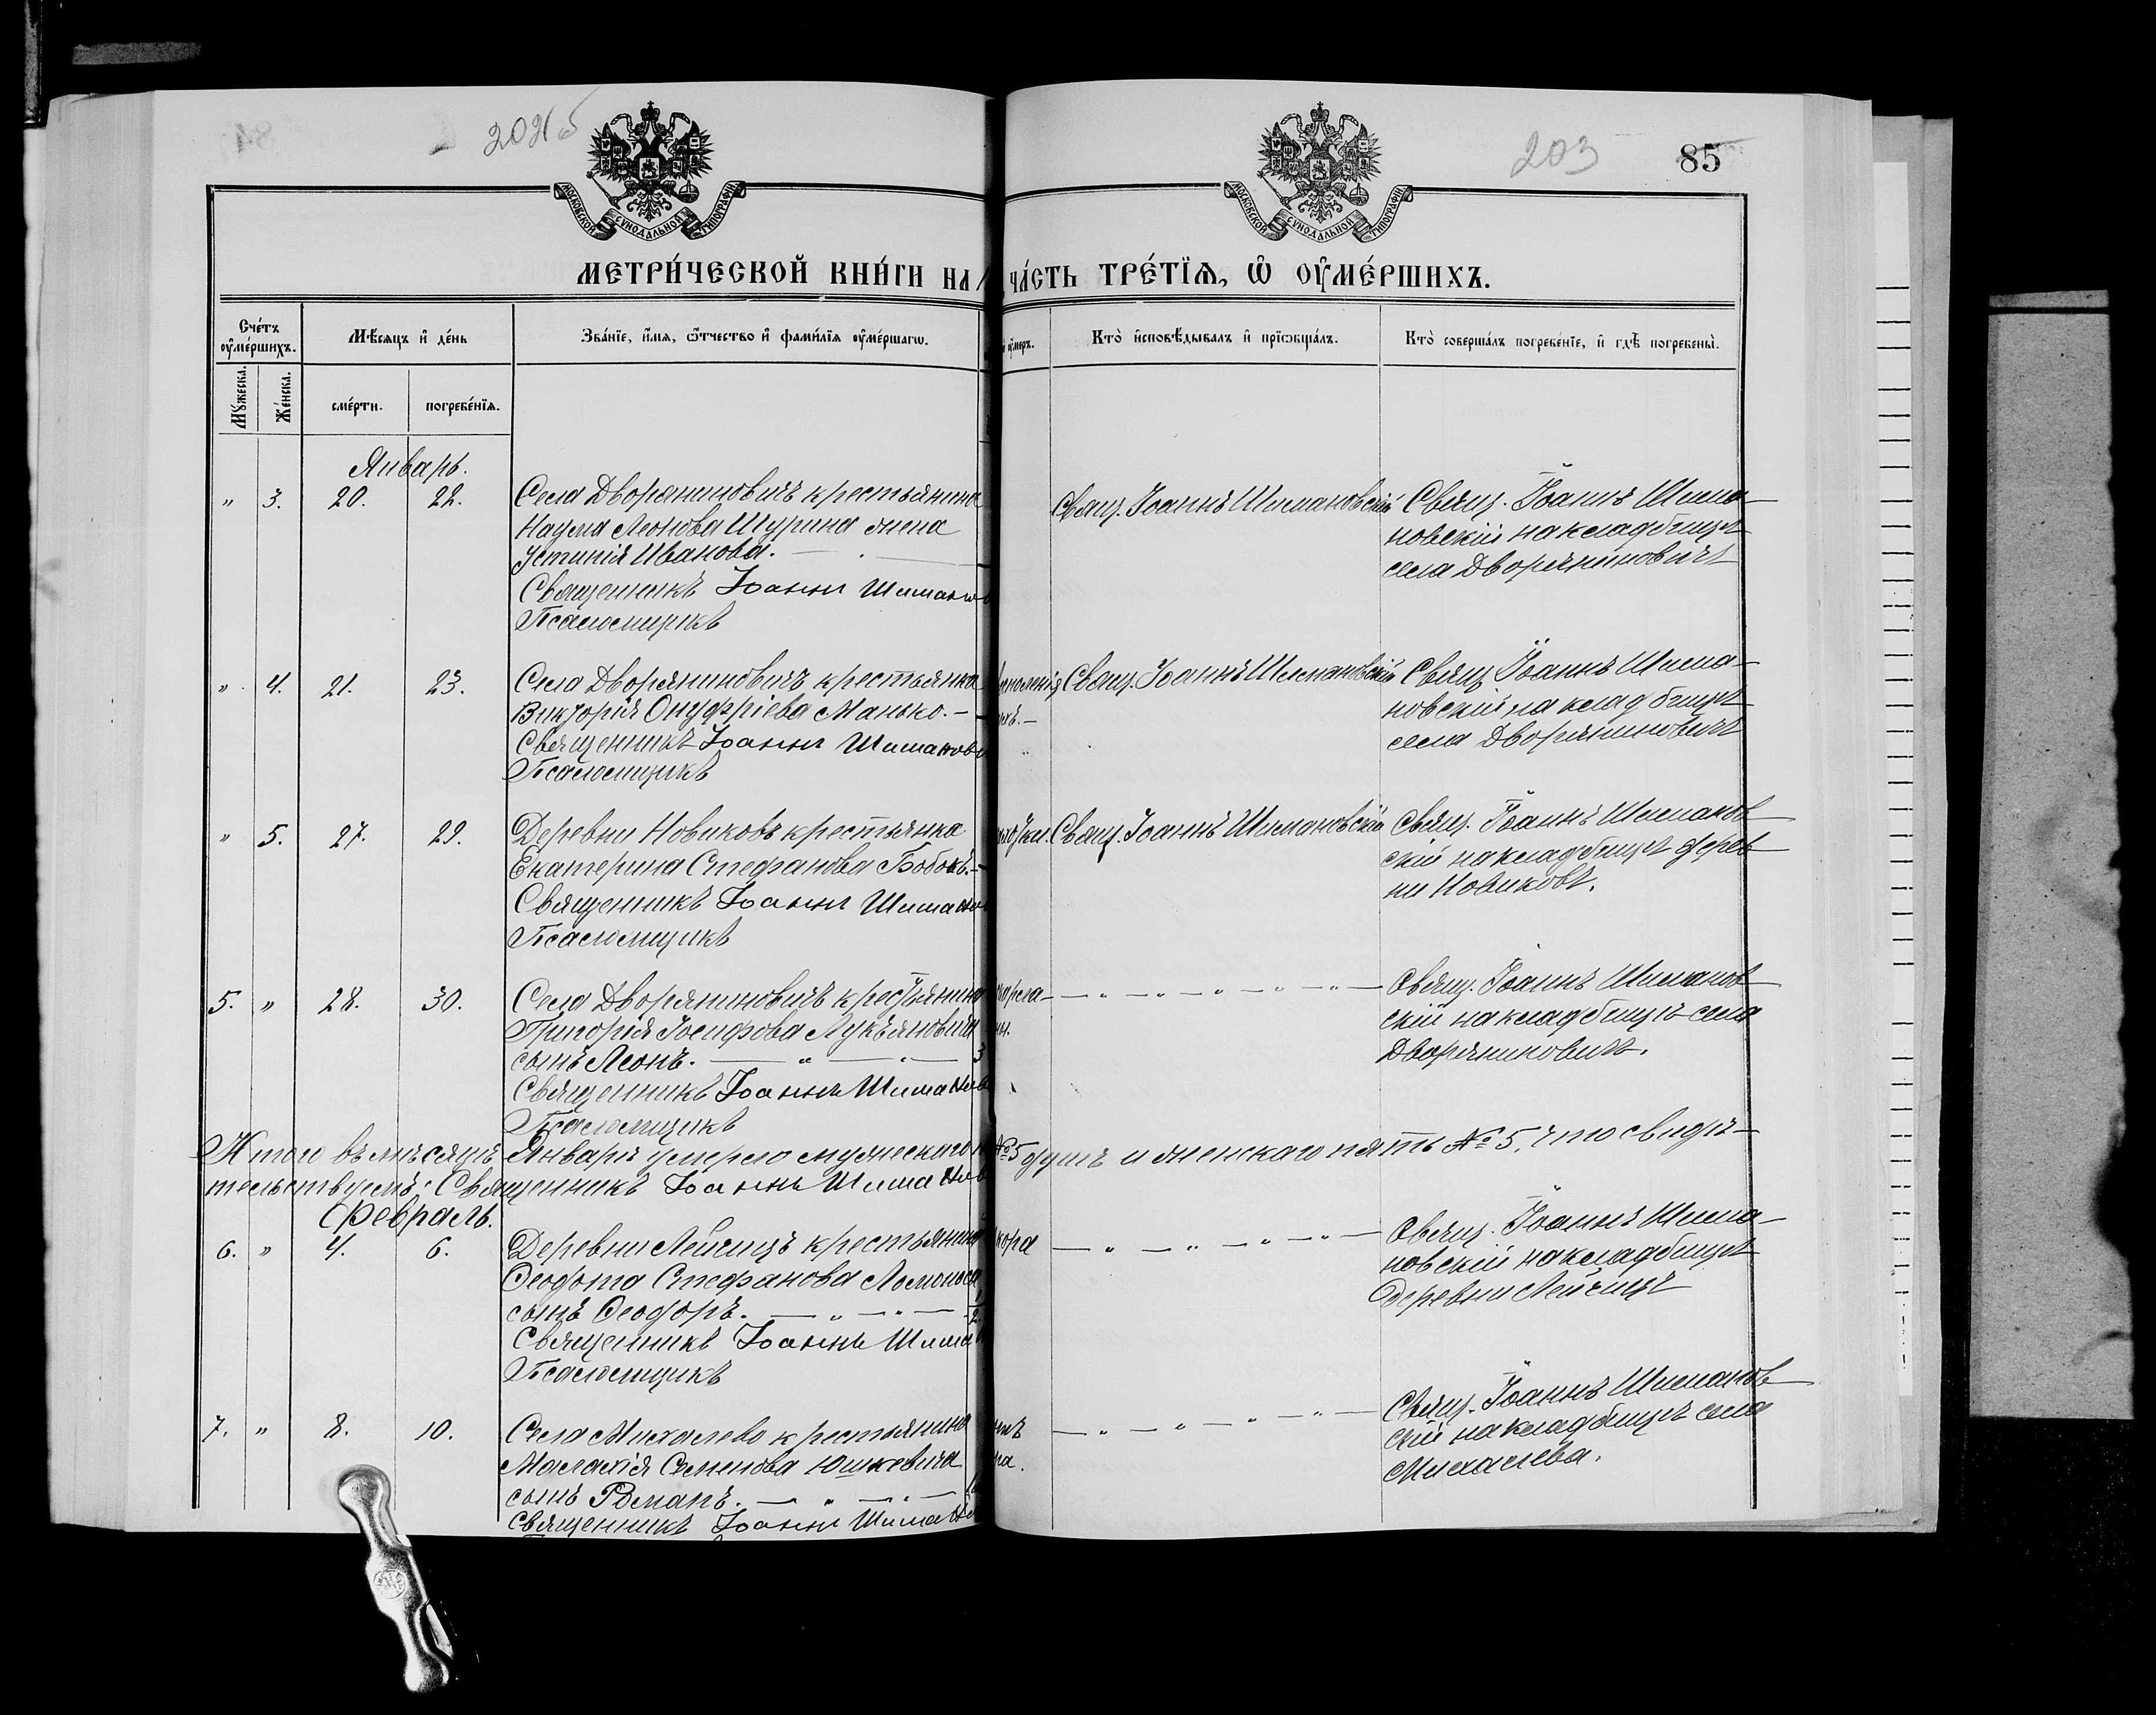 202 об
203
85
МОСКОВСКОЙ СѴНОДАЛЬНОЙ ТИПОГРАФІИ
МОСКОВСКОЙ СѴНОДАЛЬНОЙ ТИПОГРАФІИ
МЕТРИ́ЧЕСКОЙ КНИ́ГИ НА
ЧА́СТЬ ТРЕ́ТІѦ, Ѡ҆ ОУ҆МЕ́РШИХЪ.
Сче́тъ
оу҆ме́ршихъ.
Мѣ́сѧцъ и҆ де́нь
Зва́нїе, и҆́мѧ, ѻ҆́тчество и҆ фами́лїѧ оу҆ме́ршагѡ.
оу҆́меръ.
Кто̀ и҆сповѣ́дывалъ и҆ прїѡбща́лъ.
Кто̀ соверша́лъ погребе́нїе, и҆ гдѣ̀ погребены̀.
Мꙋ́жеска.
Же́нска.
сме́рти.
погребе́нїѧ.
Январь.
" 3. 20. 22. Села Дворяниновичъ крестьянина
Наума Леонова Шурина жена
Устинія Иванова.
Священникъ Іоаннъ Шиманов
Псаломщикъ
Свящ. Іоаннъ Шимановскій
Свящ. Іоаннъ Шима-
новскій на кладбищѣ
села Дворяниновичъ
" 4. 21. 23. Села Дворяниновичъ крестьянка
Викторія Онуфріева Манько. -
Священникъ Іоаннъ Шиманов
Псаломщикъ
Свящ. Іоаннъ Шимановскій
Свящ. Іоаннъ Шима-
новскій на кладбищѣ
села Дворяниновичъ
" 5. 27. 29. Деревни Новиковъ крестьянка
Екатерина Стефанова Бобокъ. -
Священникъ Іоаннъ Шимано
Псаломщикъ
Свящ. Іоаннъ Шимановскій
Свящ. Іоаннъ Шиманов-
скій на кладбищѣ дерев-
ни Новиковъ.
5. " 28. 30. Села Дворяниновичъ крестьянина
Григорія Іосифова Лукъяновича
сынъ Леонъ. — " — " —
Священникъ Іоаннъ Шиманов
Псаломщикъ
— " — " — " — " — " —
Свящ. Іоаннъ Шиманов-
скій на кладбищѣ села
Дворяниновичъ.
Итого въ мѣсяцѣ Январѣ умерло мужескаго №5 душъ и женскаго пять №5, что свидѣ-
тельствуемъ: Священникъ Іоаннъ Шиманов
Февраль.
6. " 4. 6. Деревни Лейчицъ крестьянина
Ѳеодота Стефанова
сынъ Ѳеодоръ. — " — " —
Священникъ Іоаннъ Шима
Псаломщикъ
— " — " — " — " —
Свящ. Іоаннъ Шима-
новскій на кладбищѣ
деревни Лейчицъ
7. " 8. 10. Села Михалево крестьянина
Малахія Семенова Юшкевича
сынъ Романъ. — " — " —
Священникъ Іоаннъ Шиманов
— " — " — " — " —
Свящ. Іоаннъ Шиманов-
скій на кладбищѣ села
Михалева.